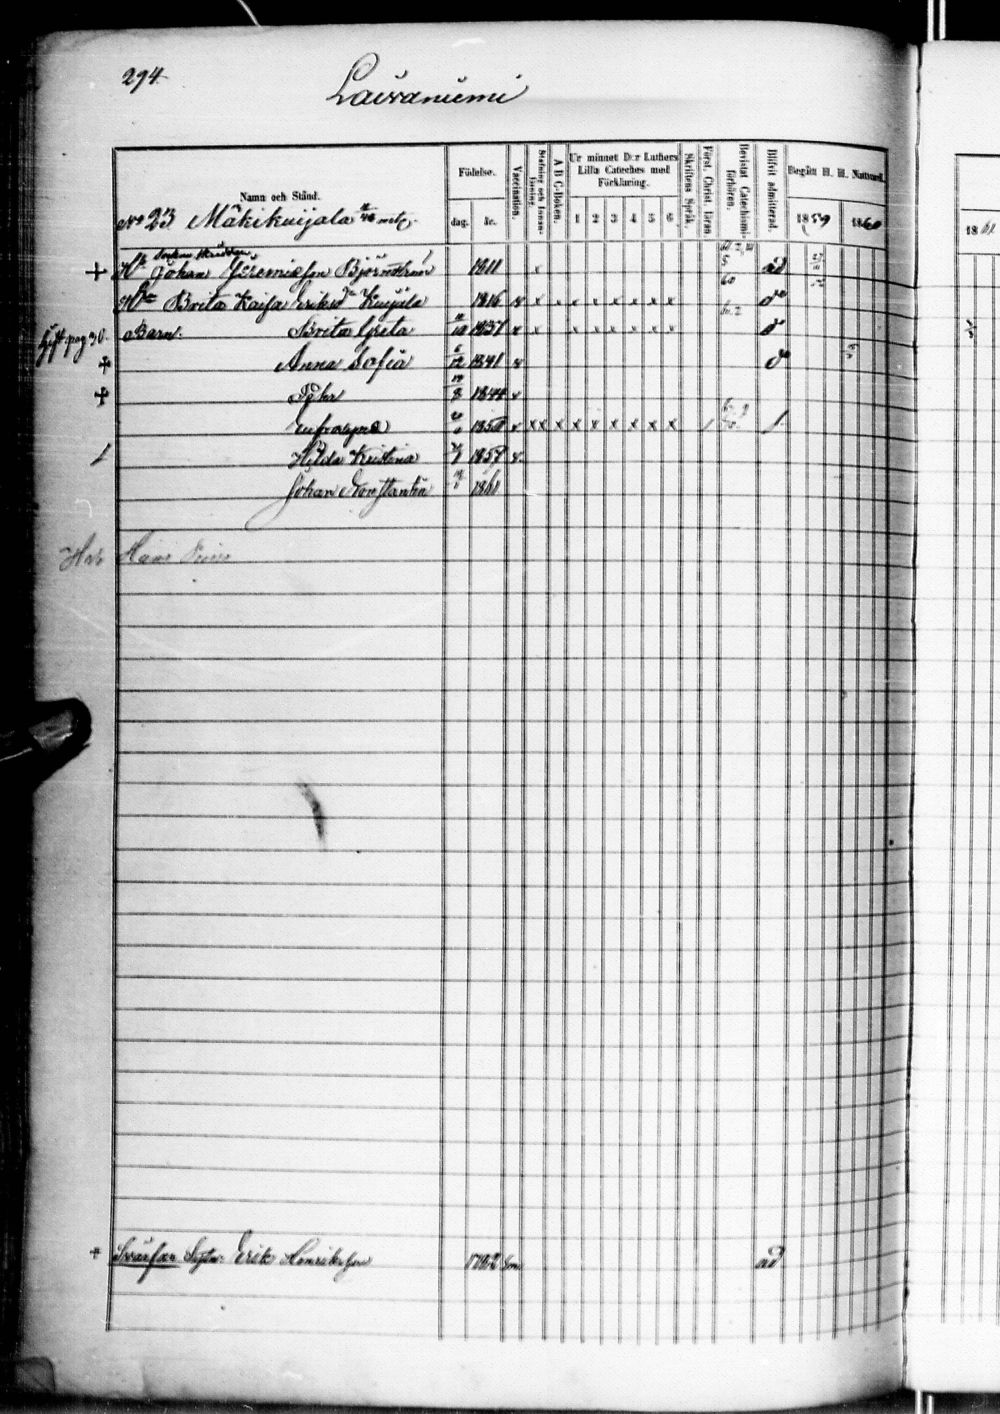 294.
Laivaniemi
Namn och Stånd.
Födelse.
dag. år.
Vaccination.
Stafning och Innanläsning.
A B C-Boken.
Ur minnet D:r Luthers Lilla Cateches med Förklaring.
1 2 3 4 5 6
Skriftens Språk.
Först. Christ. läran
Bevistat Catechismi-förhören.
Blifvit admitterad.
Begått H. H. Nattvard.
1859 1860
1861
No 23 Mäkikuijala mtg.
+ Johan Jeremiasson Björnström 1811 x ad
Brita Kaisa Eriksd. Kuijala 1816 x x x x x x x x x do
Gift pag 30. Barn: Brita Greta 1837 x x x x x x x x do
+ Anna Sofia 6/12 1841 x do
+ 8 1844 x
Eufrosyne 1850 x x x x x x x x x x / /
/ Hilda Kristina 1857 x
Johan Konstantin 1861
Hans
+ Svärfar Erik Henriksson 1782 ad